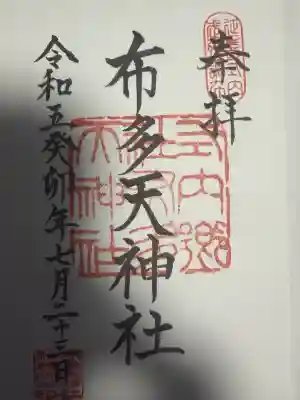 奉拝
布多天神社
令和五癸卯年七月二十三日